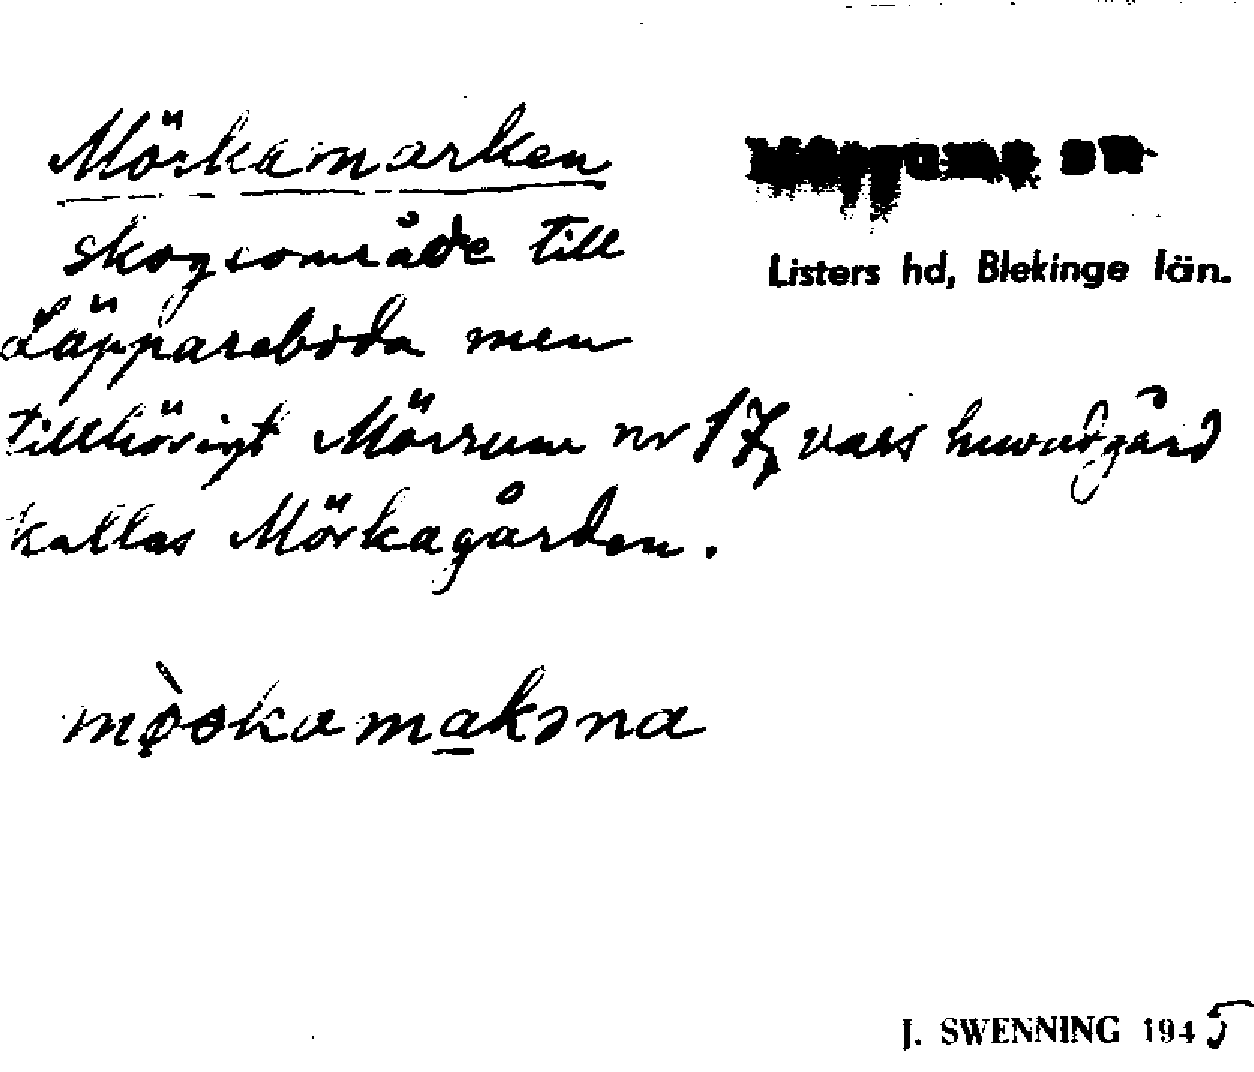 Mörkamarken
Mörrums sn
Listers hd, Blekinge län.
skogsområde till
Läppareboda men
tillhörigt Mörrum nr 17, vars huvudgård
kallas Mörkagården.
J. SWENNING 1945